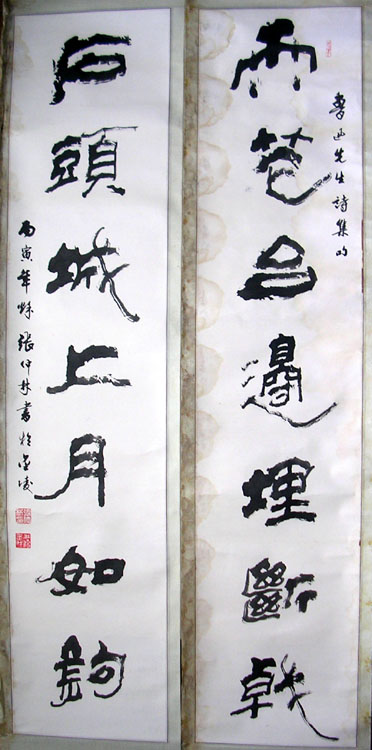 魯迅先生詩集句
雨花台邊埋斷戟
石頭城上月如鉤
丙寅年秋張仲書於金陵